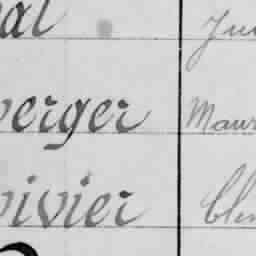 al Ju
verger Maur
ivier Clem